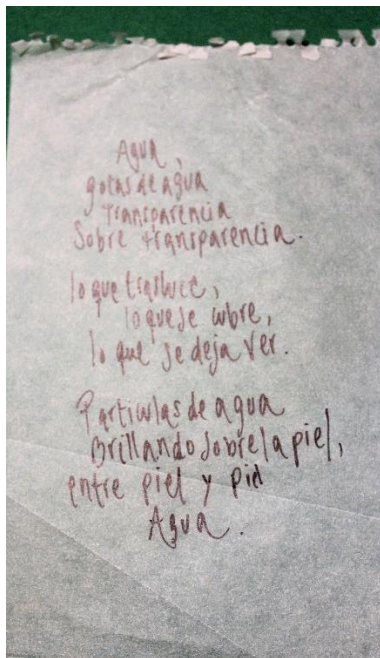 Agua,
gotas de agua
Transparencia
Sobre transparencia.
lo que trasluce,
lo que se cubre,
lo que se deja ver.
Particulas de agua
Brillando sobre la piel,
entre piel y piel
Agua.